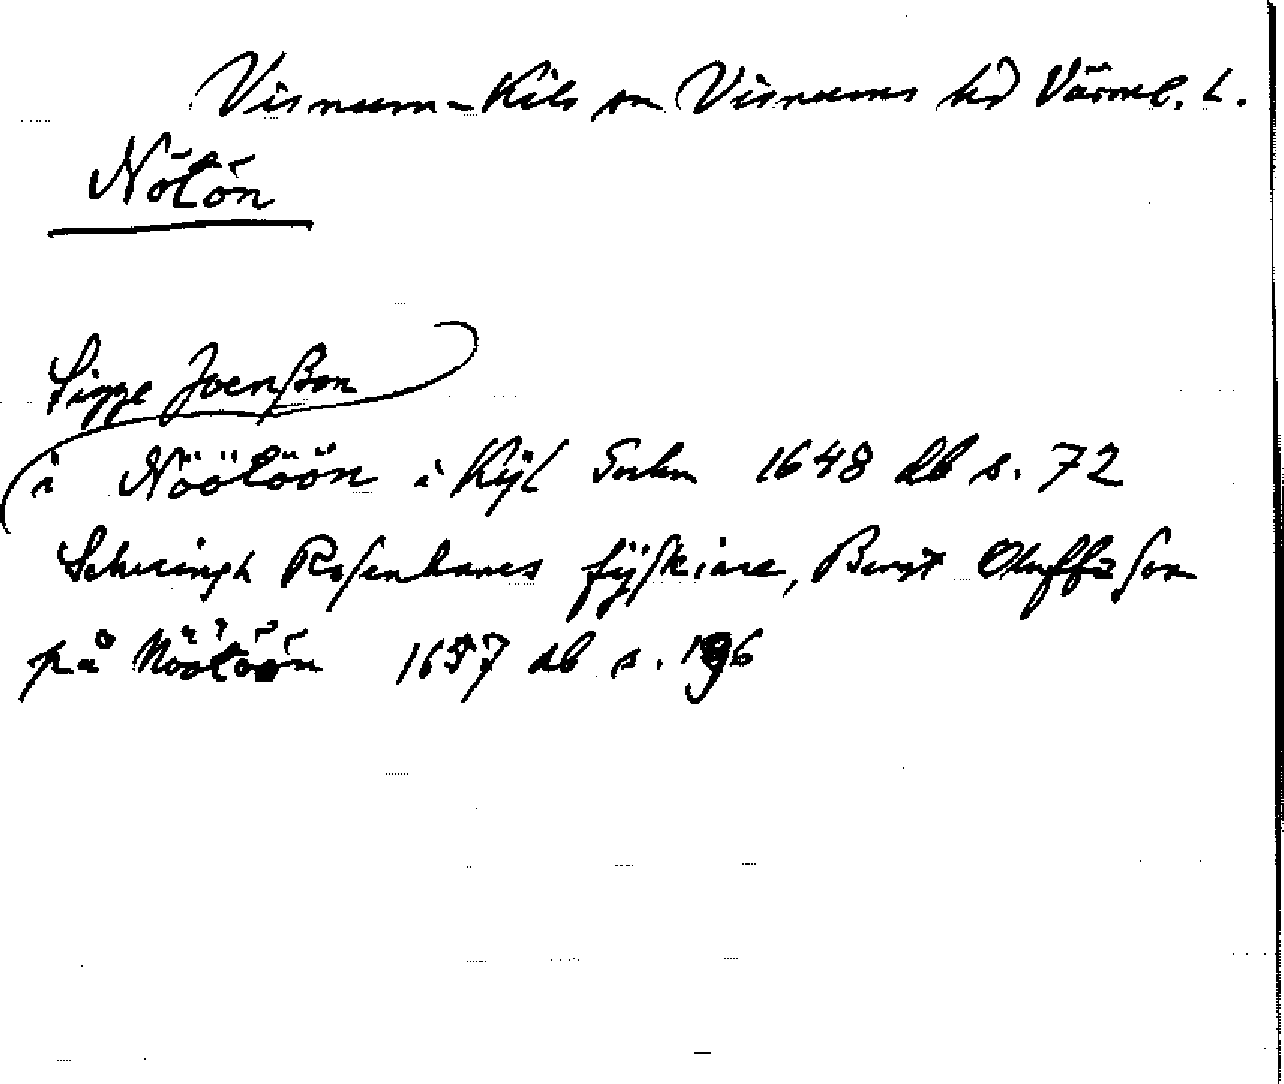 Visnum-Kils sn Visnums hd Värml. L.
Nötön
Sigge Joenßon
i Nöötöön i Kijl Sokn 1648 db s. 72
Schuringh Rosenhanes fijskiare, Bengt Oluffzson
på Nöötöön 1657 db s. 196